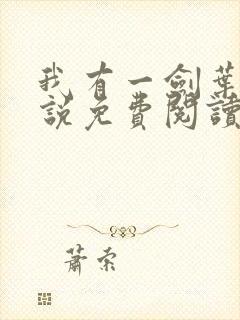 我有一劍葉
說免費閱讀
蕭索